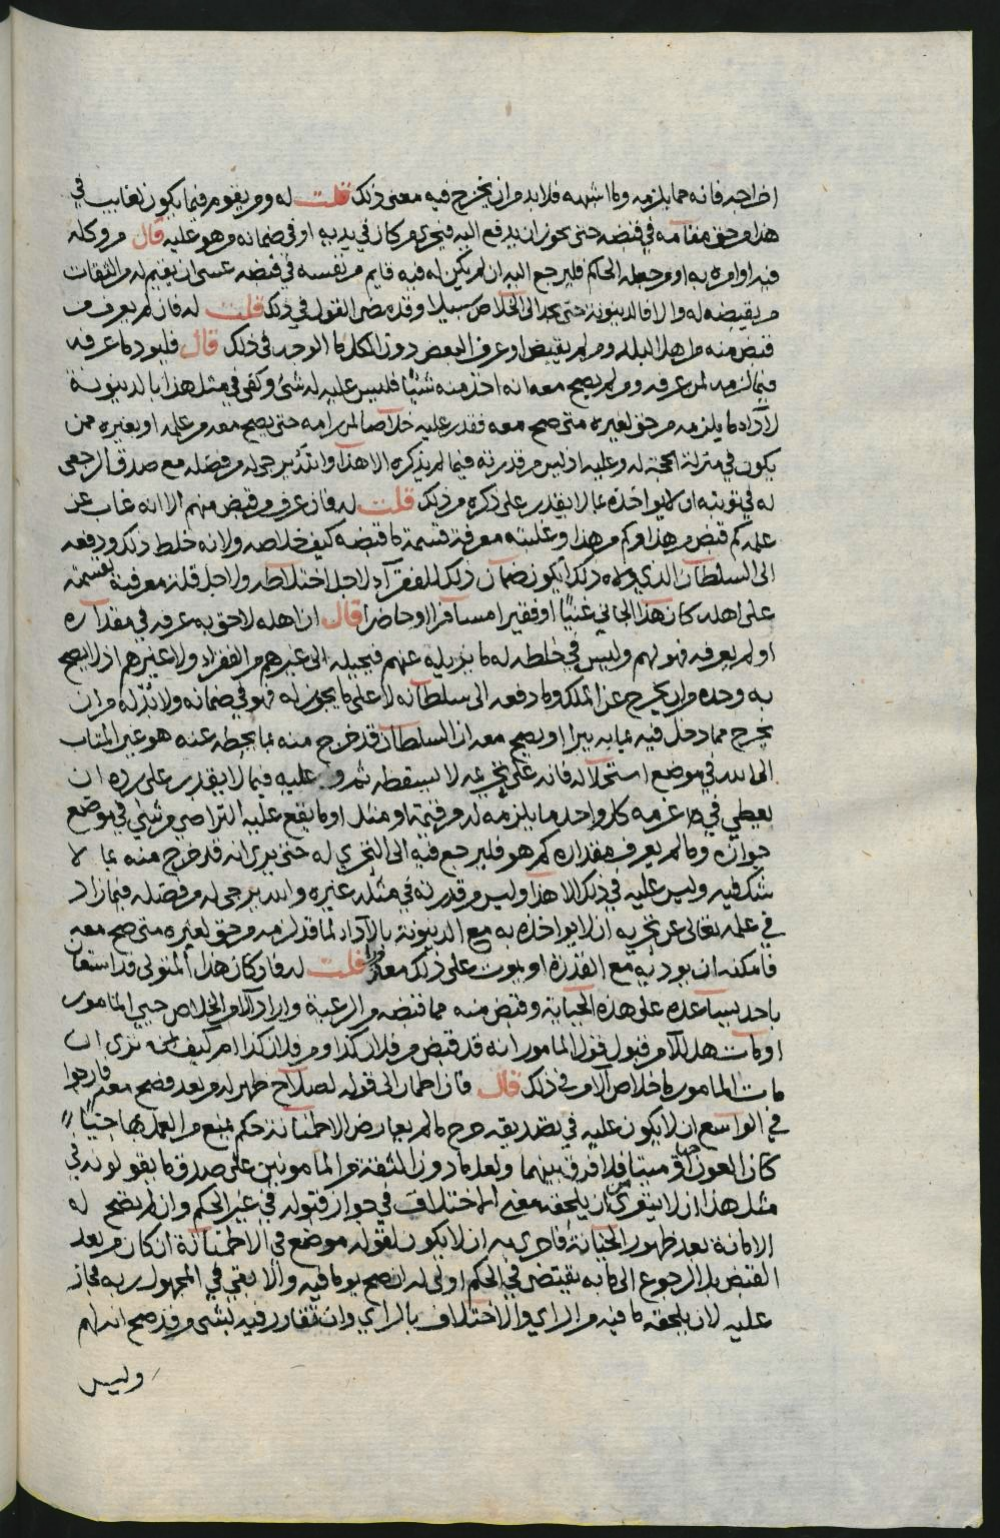 اخراجه فانه مما يلزمه وما اشبهه فلابد من ان يخرج فيه معنى ذلك قلت له ومن يقوم فيما يكون لغايب في
هذا من حق مقامه في قبضه حتى يجوز ان يدفع اليه فيجزي من كان في يديه او في ضمانه وهو عليه قال من وكله
فيه او امره به او من جعله الحاكم فليرجع اليه ان لم يكن له فيه قايم من نفسه في قبضه عسى ان يقيم له من الثقات
من يقبضه له والا فالدينونة حتى يجد الى الخلاص سبيلا وقد مضى القول في ذلك قلت له فان لم يعرف من
قبض منه من اهل البلد ومن لم يقبض او عرف البعض دون الكل ما الوجه في ذلك قال فليود ما عرفه
فيما لزمه لمن عرفه ومن لم يصح معه انه اخذ منه شيئا فليس عليه له شئ وكفى في مثل هذا بالدينونة
لاداء ما يلزمه من حق لغيره متى صح معه فقدر عليه خلاصا لمن رامه حتى يصح معه من علمه او بغيره ممن
يكون في منزلة الحجة له وعليه اذ ليس من قدرته فيما لم يذكره الا هذا والله يرجى له من فضله مع صدق الرجعى
له في توبته ان لا يواخذه بما لا يقدر على ذكره من ذلك قلت له فان عرف من قبض منهم الا انه غاب عن
علمه كم قبض من هذا وكم من هذا وغلبته معرفة قسمة ما قبضه كيف خلاصه ولانه خلط ذلك ودفعه
الى السلطان الذي ولاه ذلك ايكون ضمان ذلك للفقراء لاجل اختلاطه ولاجل قلة معرفته بقسمته
على اهله كان هذا الجاني غنيا او فقيرا مسافرا او حاضرا قال ان اهله لاحق به عرفه في مقداره
او لم يعرفه فهو لهم وليس في خلطه له ما يزيله عنهم فيحيله الى غيرهم من الفقراء ولا غيرهم اذ لا يصح
به وحده وان يخرج عن الملك وما دفعه الى سلطانه لا على ما يجوز له فهو في ضمانه ولابد له من ان
يخرج مما دخل فيه بما به يبرا او يصح معه ان السلطان قد خرج منه بما يحطه عنه هو غير المتاب
الى الله في موضع استحلاله فانه على تحريمه لا يسقطه ثم وعليه فيما لا يقدر على رده ان
يعطي في غرمه كل واحد ما يلزمه له من قيمة او مثل او ما يقع عليه التراضي من شئ في موضع
جوازه وما لم يعرف مقداره كم هو فليرجع فيه الى التحري له حتى يرى انه قد خرج منه بما لا
شك فيه وليس عليه في ذلك الا هذا وليس من قدرته في مثله غيره والله يرجى له من فضله فيما زاد
في علمه تعالى عن تحريه ان لا يواخذه به مع الدينونة بالاداء لما قد لزمه من حق لغيره متى صح معه
فامكنه ان يوديه مع القدرة او يموت على ذلك معذورا قلت له فان كان هذا المتولى قد استعان
باحد يساعده على هذه الجباية وقبض منه مما قبضه من الرعية واراد الامر الخلاص حيي المامور
او مات هل للامر قبول قول المامور انه قد قبض من فلان كذا ومن فلان كذا ام كيف ترى ان
مات المامور ما خلاص الامر في ذلك قال فان اطمان الى قوله لصلاح ظهر له من بعد فصح معه فارجوا
في الواسع ان لا يكون عليه في تصديقه حرج ما لم يعارض الاطمانة حكم يمنع من العمل بها حيا
كان العون او ميتا فلا فرق بينهما ولعل ما دون الثقة من المامونين على صدق ما يقولونه في
مثل هذا ان لا يتعرى من ان يلحقه معنى الاختلاف في جواز قبوله في غير الحكم وان لم تصح له
الامانة بعد ظهور الخيانة فاحرى به ان لا يكون لقوله موضع في الاطمانة ان كان من بعد
القبض بل الرجوع الى ما به يقتضى في الحكم اولى له ان صح بوما فيه والا بقي في المجهول ربه فجاز
عليه لان يلحقه ما فيه من الراي والاختلاف بالراي وان تقارر فيه لشئ من قد صح انه لهم
وليس